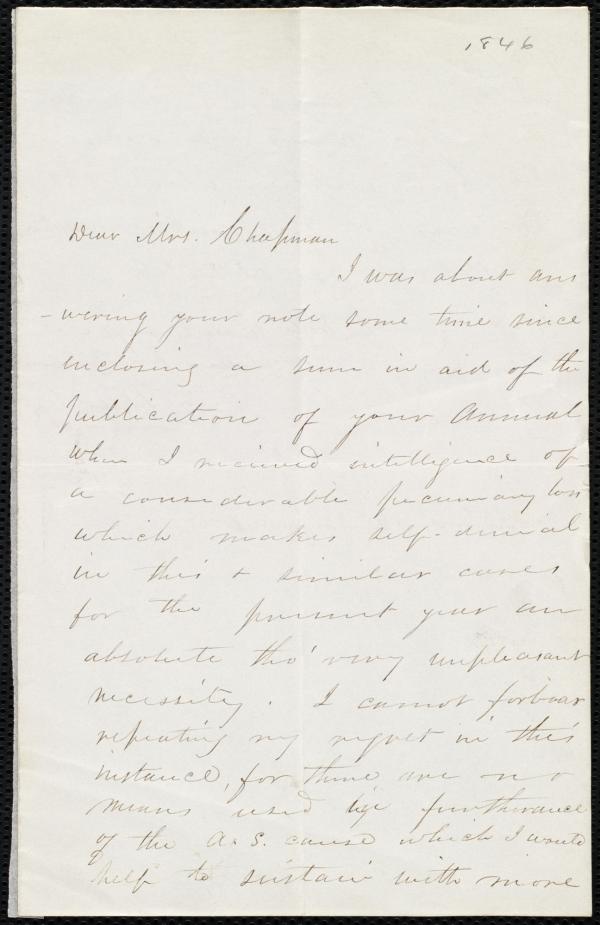 1846
Dear Mrs. Chapman
I was about ans
-wering your note some time since
enclosing a sum in aid of the
publication of your Annual
when I recieved intelligence of
a considerable pecuniary loss
which makes self-denial
in this & similar cases
for the present year an
absolute tho' very unpleasant
necessity. I cannot forbear
repeating my regret in this
instance, for there are no
means used in furtherance
of the A. S. cause which I would
help to sustain with more